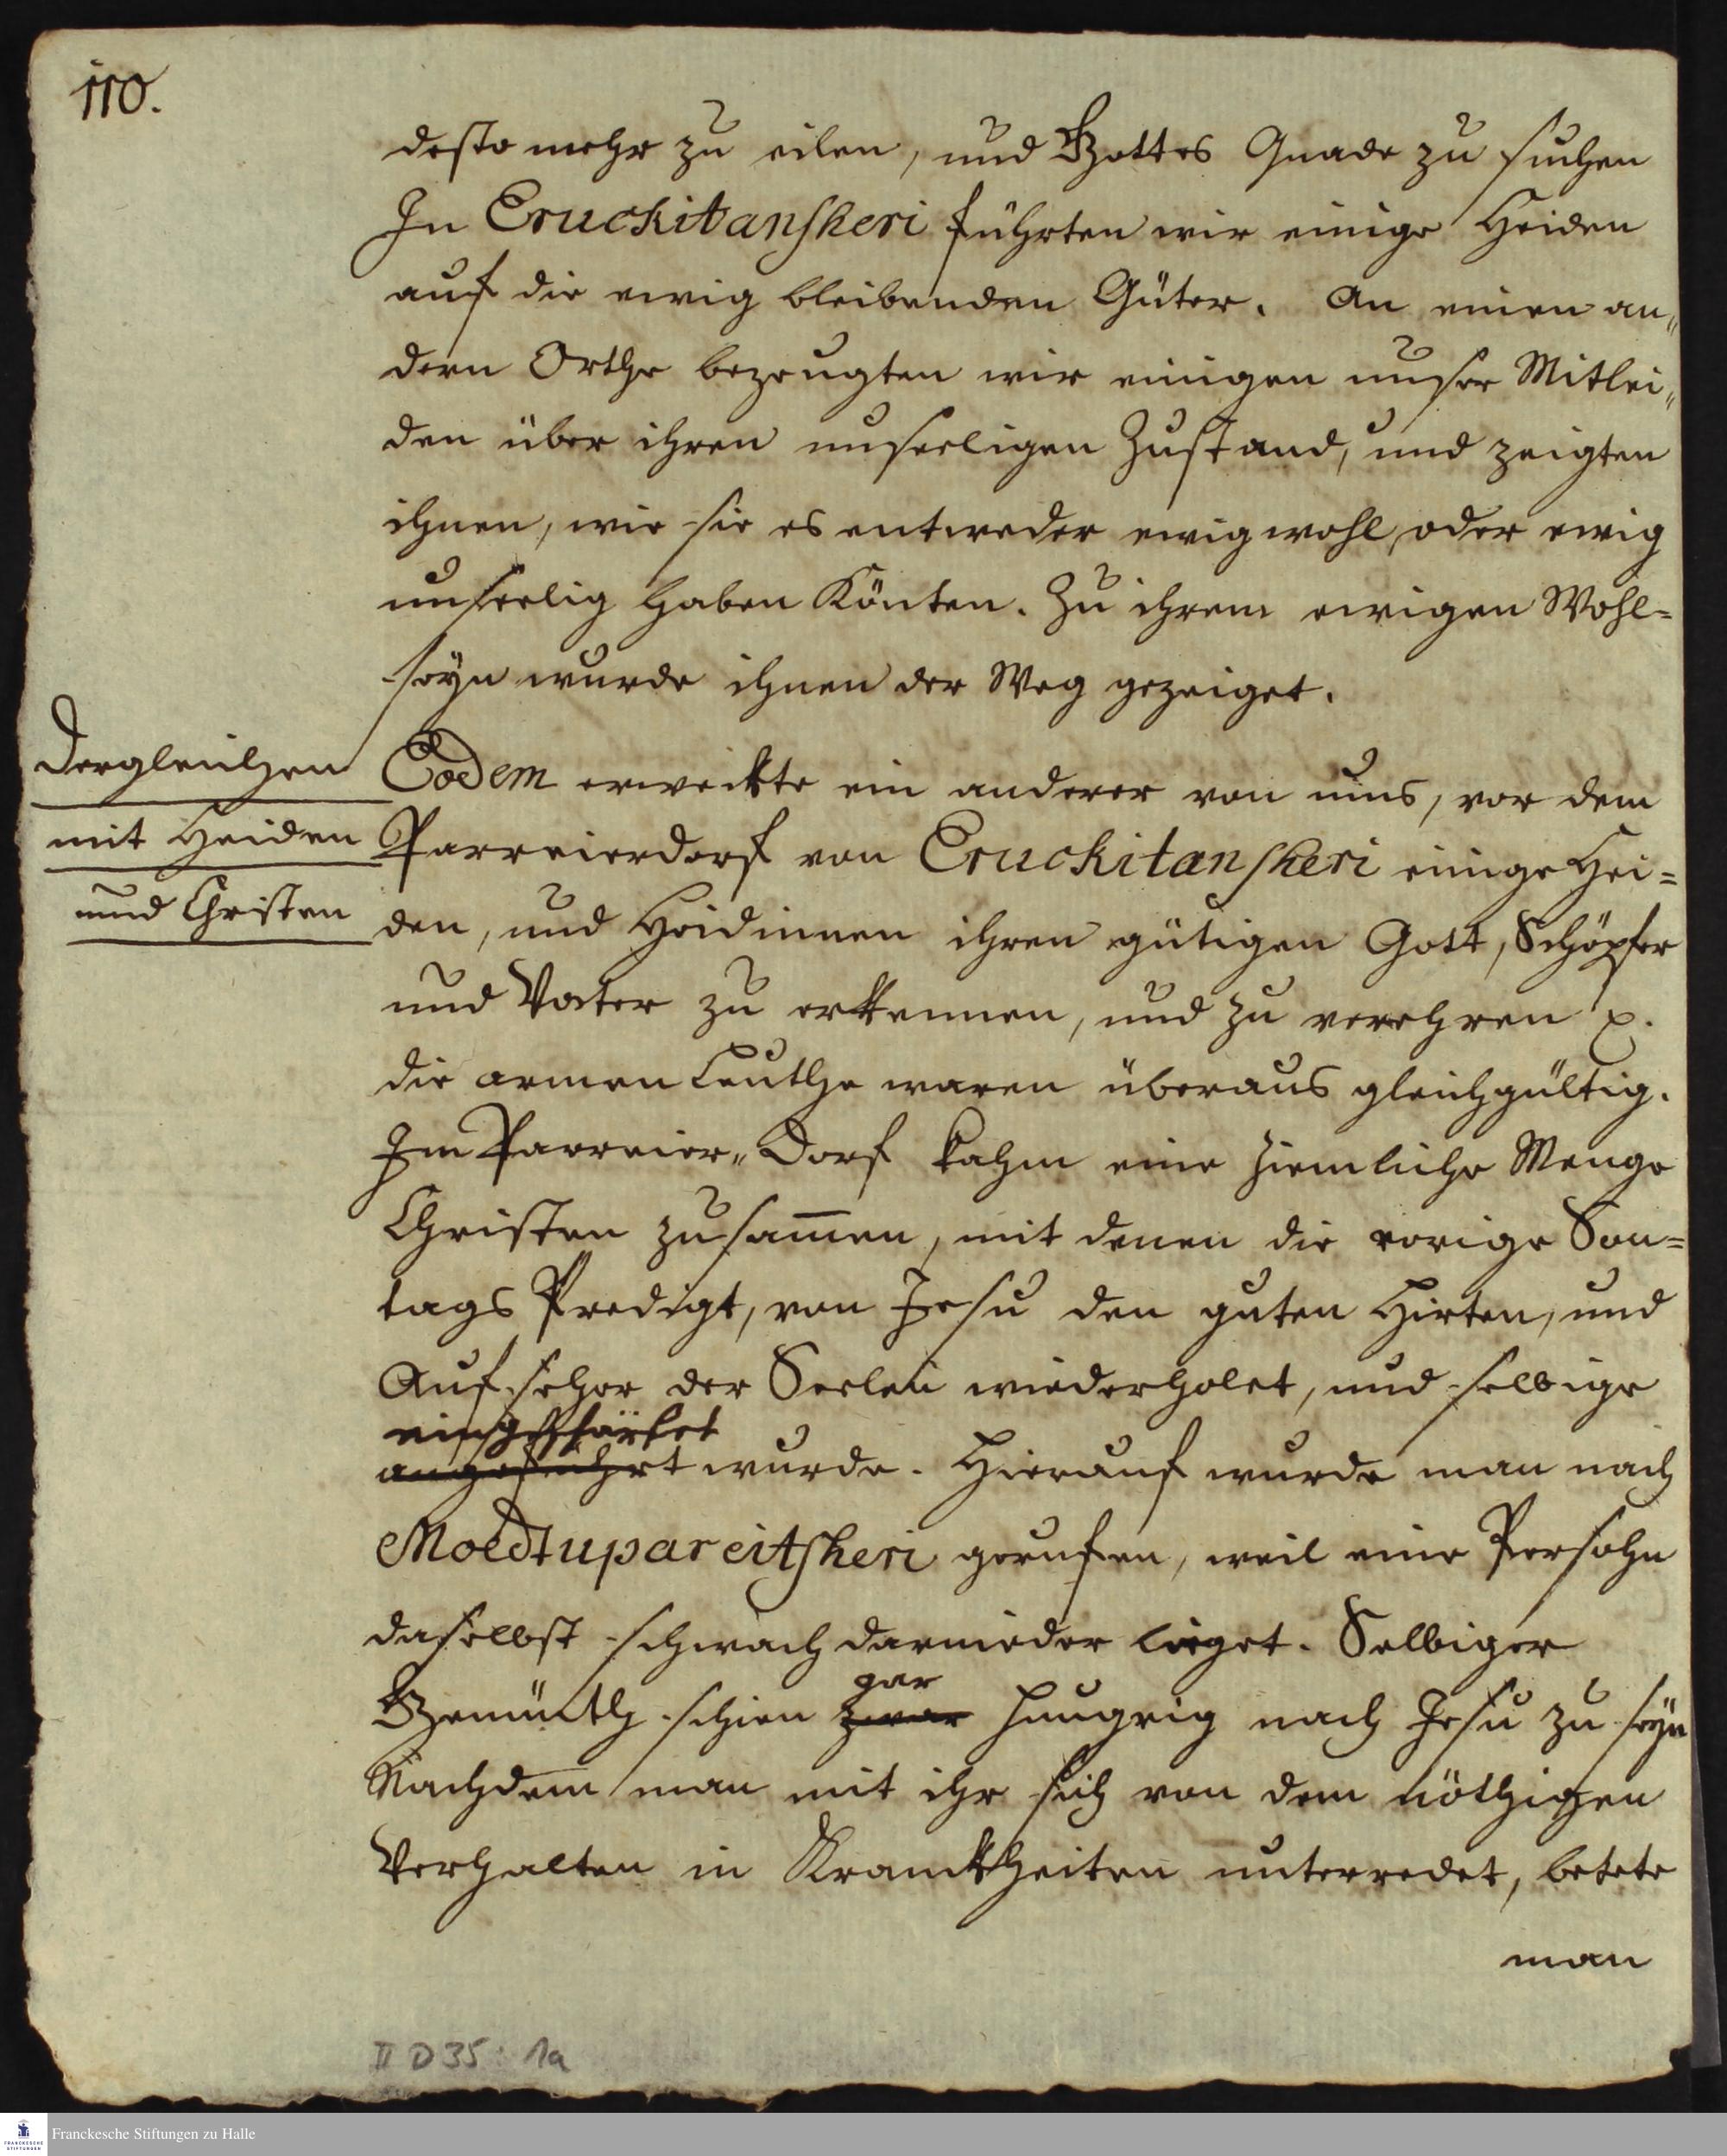 110.
desto mehr zu eilen, und Gottes Gnade zu suchen
In Eruckitanscheri führten wir einige Heiden
auf die ewig bleibenden Güter. An einen an„
dern Orthe bezeugten wir einigen unser Mitlei„
den über ihren unseeligen Zustand, und zeigten
ihnen, wie sie es entweder ewig wohl, oder ewig
unseelig haben könten. Zu ihrem ewigen Wohl=
seÿn wurde ihnen der Weg gezeiget.
Dergleichen
mit Heiden
und Christen
Eodem erweckte ein anderer von uns, vor dem
Parreierdorf von Eruckitanscheri einige Hei=
den, und Heidinnen ihren gütigen Gott, Schöpfer
und Vater zu erkennen, und zu verehren p.
die armen Leuthe waren überaus gleichgültig.
Im Parreier„Dorf kahm eine ziemliche Menge
Christen zusam̅en, mit denen die vorige Son=
tags Predigt, von Jesu den guten Hirten, und
Aufseher der Seelen wiederholet, und selbige
eingeschärfet
angeführt wurde. Hierauf wurde man nach
Moedtupareitscheri gerufen, weil eine Persohn
daselbst schwach darnieder lieget. Selbiger
gar
Gemüth schien zwar hungrig nach Jesu zu seÿn
Nachdem man mit ihr sich von dem nöthigen
Verhalten in Kranckheiten unterredet, betete
man
II D 35 : 1a
Franckesche Stiftungen zu Halle
FRANCKESCHE
STIFTUNGEN